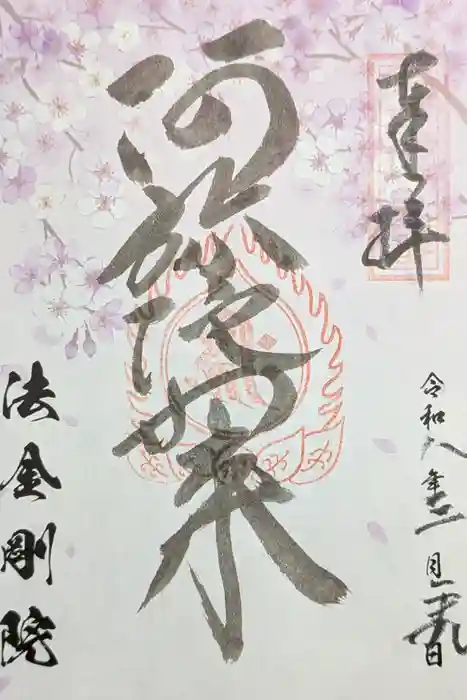 奉拝
阿弥陀如来
令和八年三月十九日
法金剛院